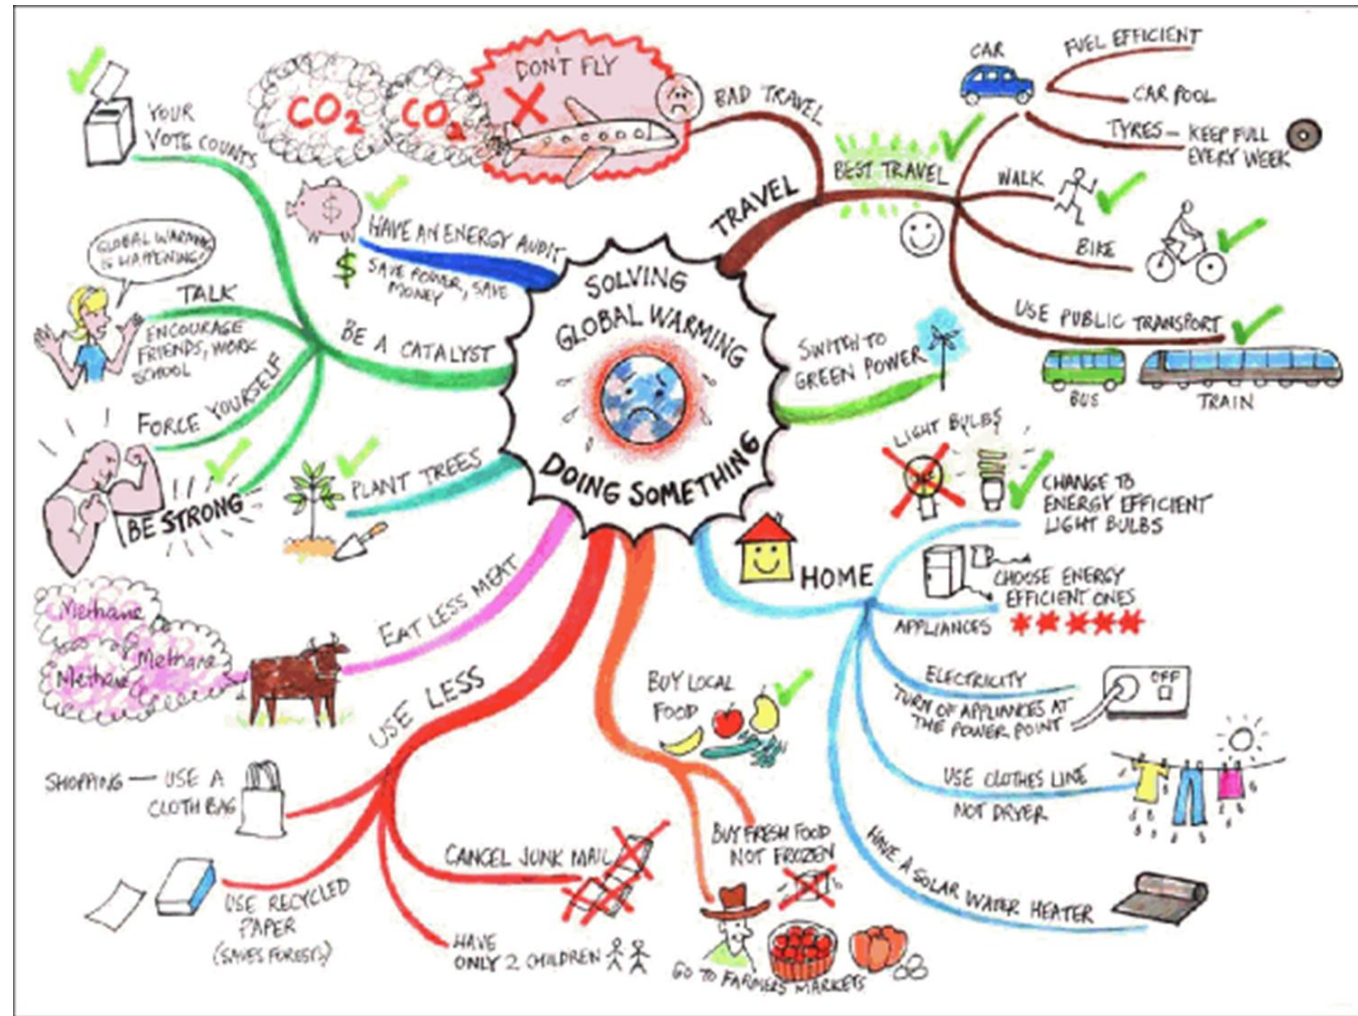 SOLVING
GLOBAL WARMING
DOING SOMETHING
TRAVEL
BAD TRAVEL
DON'T FLY
CO2
CO2
BEST TRAVEL
CAR
FUEL EFFICIENT
CAR POOL
TYRES – KEEP FULL
EVERY WEEK
WALK
BIKE
USE PUBLIC TRANSPORT
BUS
TRAIN
SWITCH TO
GREEN POWER
HOME
LIGHT BULBS
CHANGE TO
ENERGY EFFICIENT
LIGHT BULBS
CHOOSE ENERGY
EFFICIENT ONES
APPLIANCES
ELECTRICITY
TURN OF APPLIANCES AT
THE POWER POINT
OFF
USE CLOTHES LINE
NOT DRYER
HAVE A SOLAR WATER HEATER
BUY LOCAL
FOOD
BUY FRESH FOOD
NOT FROZEN
GO TO FARMERS MARKETS
USE LESS
CANCEL JUNK MAIL
HAVE
ONLY 2 CHILDREN
USE RECYCLED
PAPER
(SAVES FORESTS)
SHOPPING — USE A
CLOTH BAG
EAT LESS MEAT
Methane
Methane
Methane
PLANT TREES
BE A CATALYST
YOUR
VOTE COUNTS
TALK
GLOBAL WARMING
IS HAPPENING!
ENCOURAGE
FRIENDS, WORK
SCHOOL
FORCE YOURSELF
BE STRONG
HAVE AN ENERGY AUDIT
SAVE POWER, SAVE
MONEY
$
$